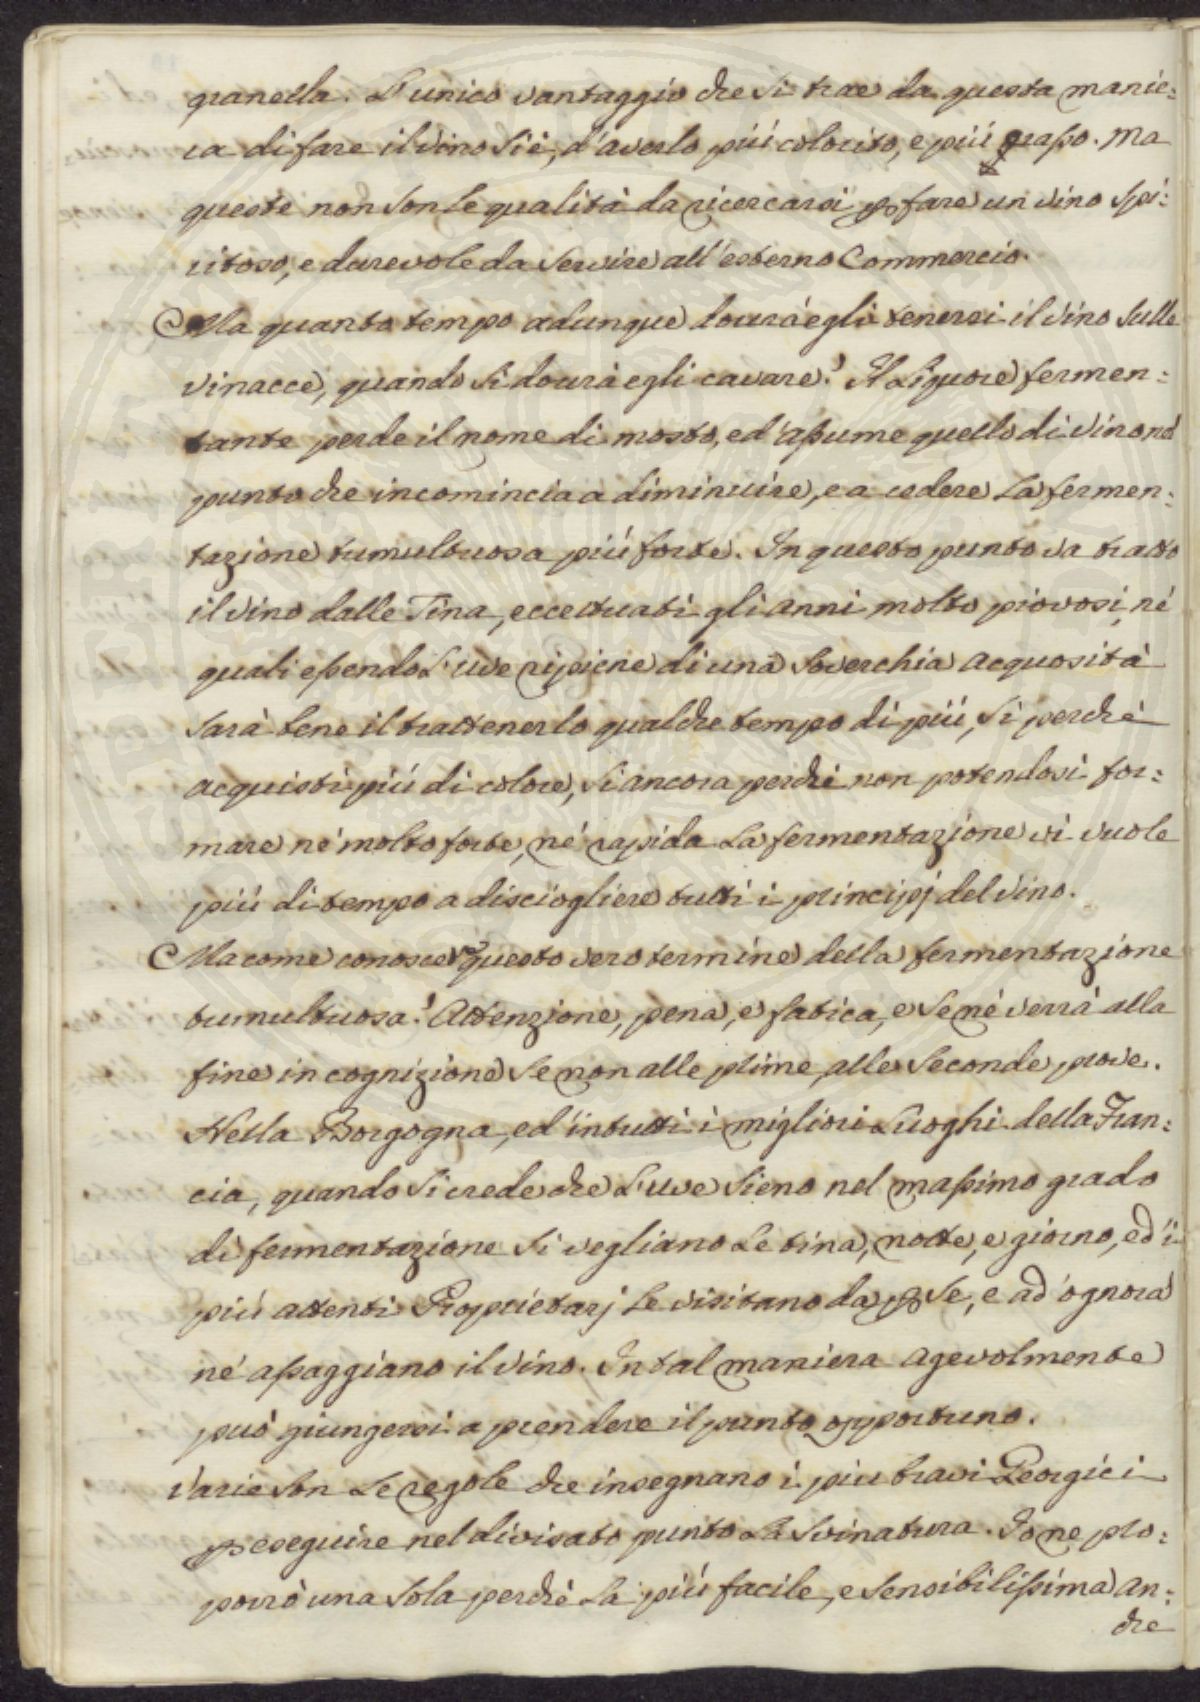 granella. L'unico vantaggio che si trae da questa manie:
ra di fare il vino si è, d'averlo più colorito, e più grasso. Ma
queste non son le qualità da ricercarsi per fare un vino spi:
ritoso, e durevole da servire all'esterno Commercio.
Ma quanto tempo adunque dovrà egli tenersi il vino sulle
vinacce, quando si dovrà egli cavare? Il Liquore fermen:
tante perde il nome di mosto, ed assume quello di vino nel
punto che incomincia a diminuire, e a cedere La fermen:
tazione tumultuosa più forte. In questo punto va tratto
il vino dalle Tina, eccettuati gli anni molto piovosi, né
quali essendo L'uve ripiene di una soverchia acquosità
sarà bene il trattenerlo qualche tempo di più, sì perché
acquisti più di colore, sì ancora perché non potendosi for:
mare né molto forte, né rapida La fermentazione vi vuole
più di tempo a disciogliere tutti i principj del vino.
Ma come conoscer questo vero termine della fermentazione
tumultuosa? Attenzione, pena, e fatica, e se né verrà alla
fine in cognizione se non alle prime, alle seconde prove.
Nella Borgogna, ed in tutti i migliori Luoghi della Fran:
cia, quando si crede che L'uve sieno nel massimo grado
di fermentazione si vegliano Le tina, notte, e giorno, ed i
più attenti Proprietarj Le visitano da per se, e ad ognora
né assaggiano il vino. In tal maniera agevolmente
può giungersi a prendere il punto opportuno.
Varie son Le regole che insegnano i più bravi Georgici
per eseguire nel divisato punto La svinatura. Io ne pro:
porrò una sola perché La più facile, e sensibilissima an:
che